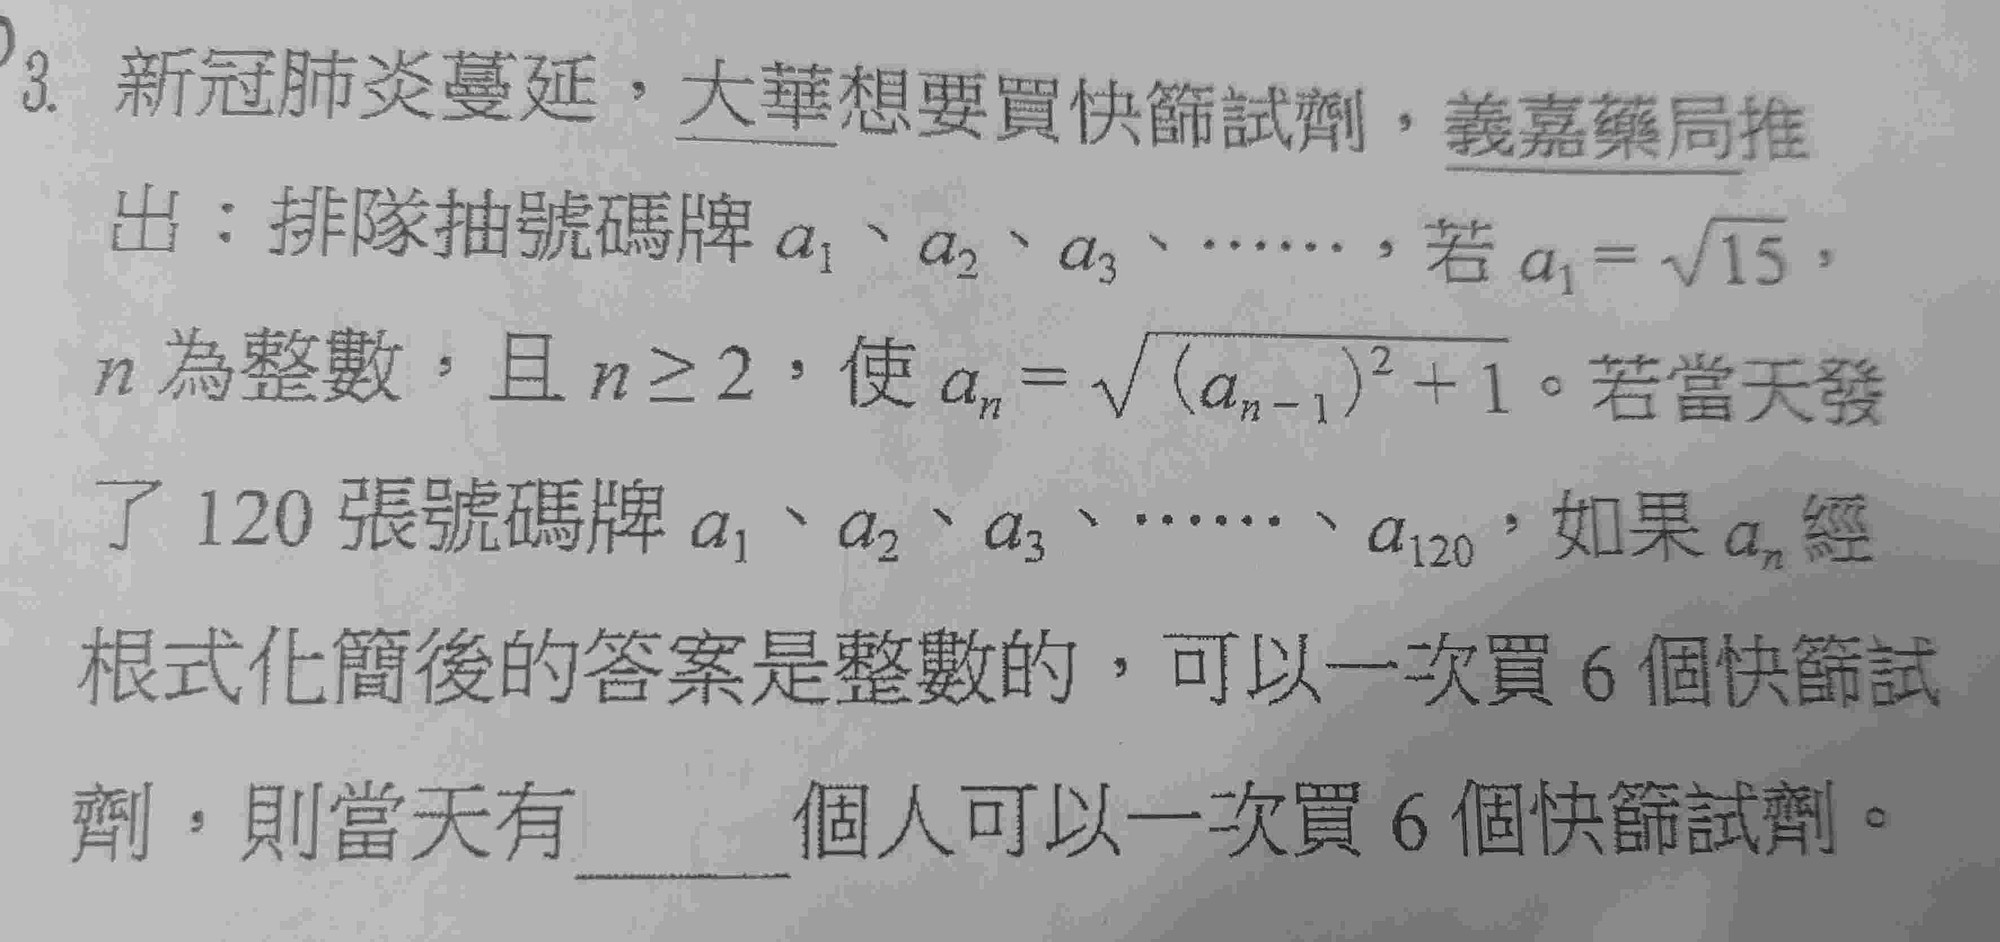 3. 新冠肺炎蔓延，大華想要買快篩試劑，義嘉藥局推
出：排隊抽號碼牌 a₁、a₂、a₃、……，若 a₁＝√15，
n 為整數，且 n≥2，使 aₙ＝√(aₙ₋₁)²＋1。若當天發
了 120 張號碼牌 a₁、a₂、a₃、……、a₁₂₀，如果 aₙ 經
根式化簡後的答案是整數的，可以一次買 6 個快篩試
劑，則當天有____個人可以一次買 6 個快篩試劑。